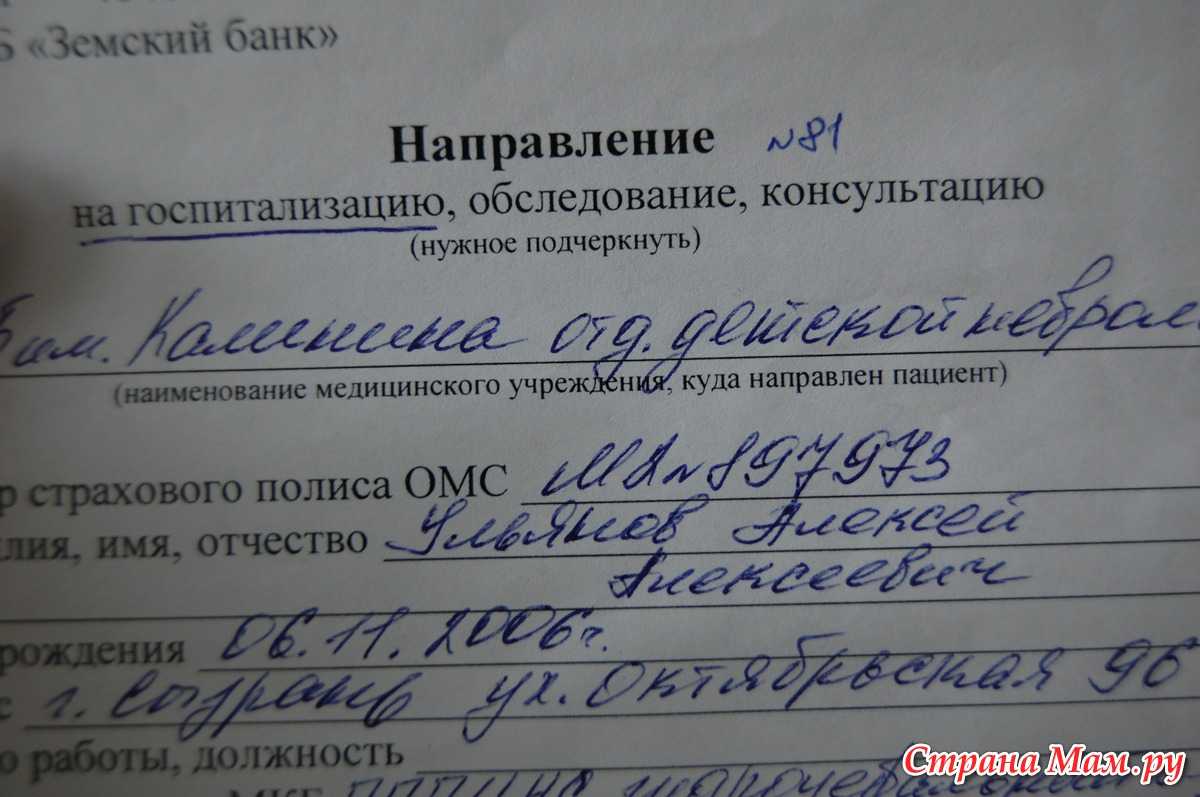 Б «Земский банк»
Направление №81
на госпитализацию, обследование, консультацию
(нужное подчеркнуть)
им. Калинина отд. детской невролог
(наименование медицинского учреждения, куда направлен пациент)
р страхового полиса ОМС МДN897973
лия, имя, отчество Ульянов Алексей
Алексеевич
рождения 06.11.2006г.
с г. Сызрань ул. Октябрьская 96
о работы, должность
МКБ группа
Страна Мам.ру